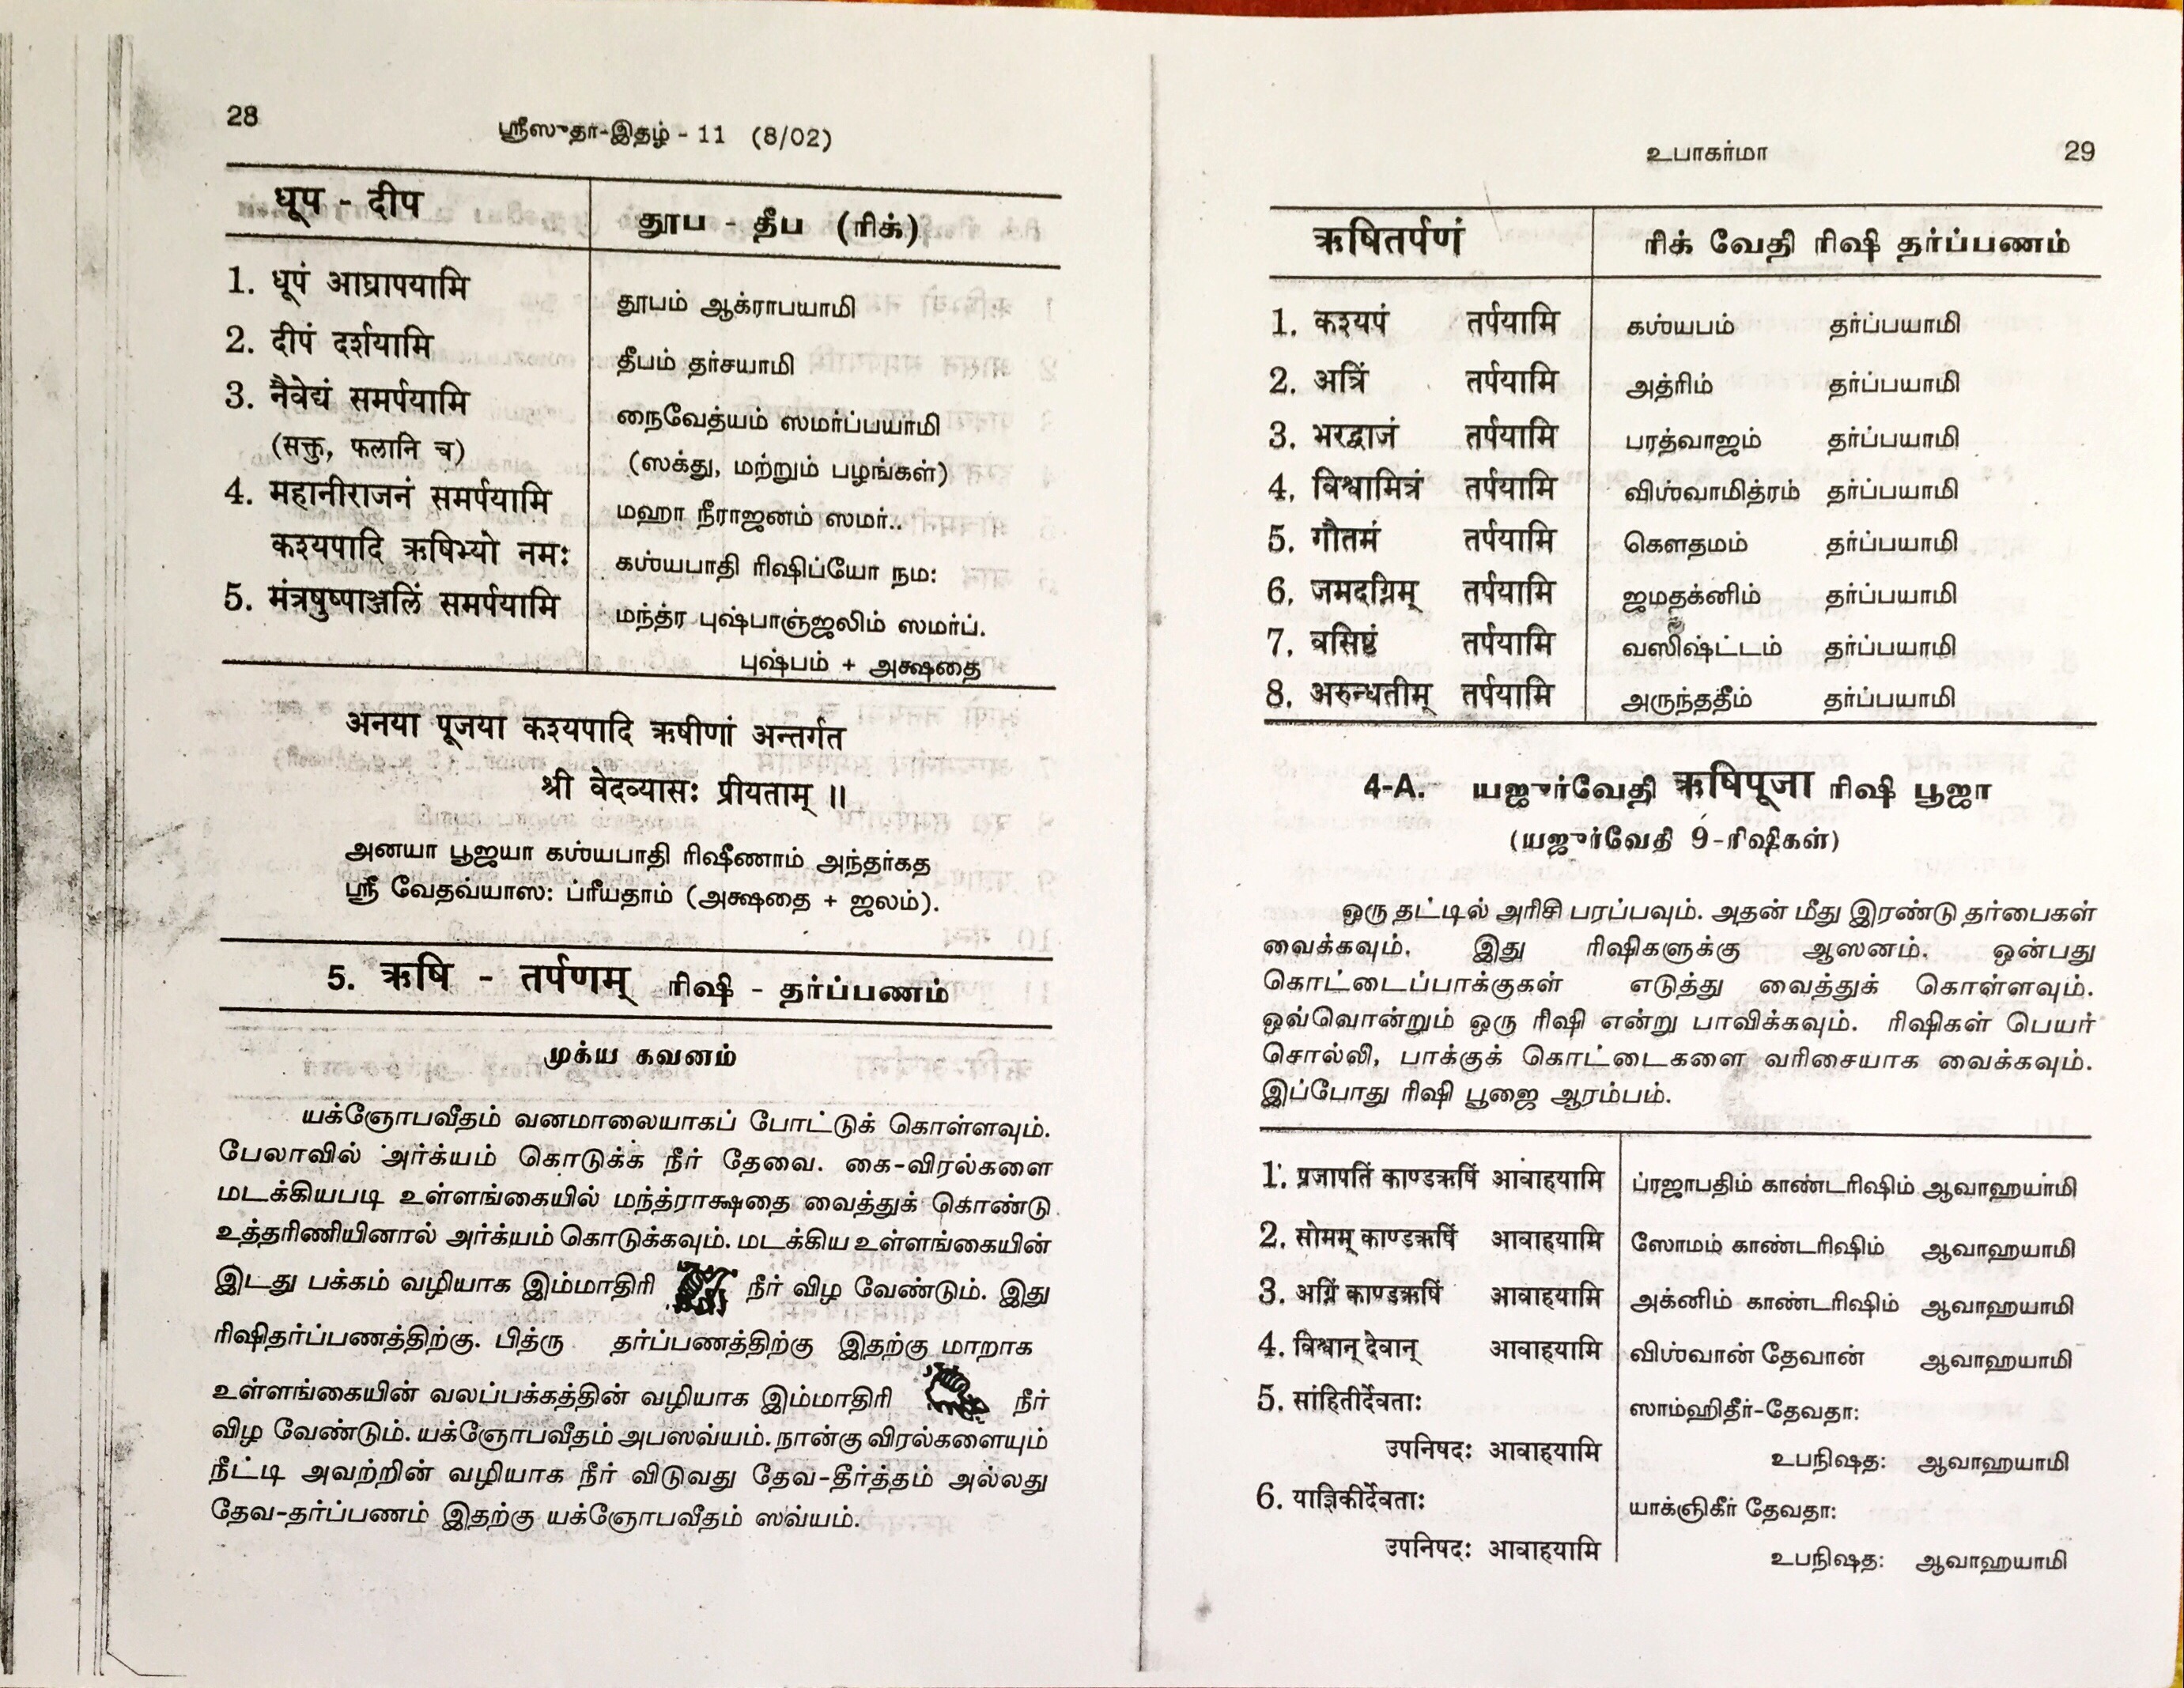 28
ஸ்ரீஸுதா-இதழ் - 11 (8/02)
धूप - दीप
தூப - தீப (ரிக்)
1. धूपं आघ्रापयामि
தூபம் ஆக்ராபயாமி
2. दीपं दर्शयामि
தீபம் தர்சயாமி
3. नैवेद्यं समर्पयामि
நைவேத்யம் ஸமர்ப்பயாமி
(सक्तु, फलानि च)
(ஸக்து, மற்றும் பழங்கள்)
4. महानीराजनं समर्पयामि
மஹா நீராஜனம் ஸமர்..
कश्यपादि ऋषिभ्यो नमः
கஶ்யபாதி ரிஷிப்யோ நம:
5. मंत्रषुष्पाञ्जलिं समर्पयामि
மந்த்ர புஷ்பாஞ்ஜலிம் ஸமர்ப்.
புஷ்பம் + அக்ஷதை
अनया पूजया कश्यपादि ऋषीणां अन्तर्गत
श्री वेदव्यासः प्रीयताम् ॥
அனயா பூஜயா கஶ்யபாதி ரிஷீணாம் அந்தர்கத
ஸ்ரீ வேதவ்யாஸ: ப்ரீயதாம் (அக்ஷதை + ஜலம்).
5. ऋषि - तर्पणम् ரிஷி - தர்ப்பணம்
முக்ய கவனம்
யக்ஞோபவீதம் வனமாலையாகப் போட்டுக் கொள்ளவும்.
பேலாவில் அர்க்யம் கொடுக்க நீர் தேவை. கை-விரல்களை
மடக்கியபடி உள்ளங்கையில் மந்த்ராக்ஷதை வைத்துக் கொண்டு
உத்தரிணியினால் அர்க்யம் கொடுக்கவும். மடக்கிய உள்ளங்கையின்
இடது பக்கம் வழியாக இம்மாதிரி நீர் விழ வேண்டும். இது
ரிஷிதர்ப்பணத்திற்கு. பித்ரு தர்ப்பணத்திற்கு இதற்கு மாறாக
உள்ளங்கையின் வலப்பக்கத்தின் வழியாக இம்மாதிரி நீர்
விழ வேண்டும். யக்ஞோபவீதம் அபஸவ்யம். நான்கு விரல்களையும்
நீட்டி அவற்றின் வழியாக நீர் விடுவது தேவ-தீர்த்தம் அல்லது
தேவ-தர்ப்பணம் இதற்கு யக்ஞோபவீதம் ஸவ்யம்.
உபாகர்மா 29
ऋषितर्पणं
ரிக் வேதி ரிஷி தர்ப்பணம்
1. कश्यपं तर्पयामि கஶ்யபம் தர்ப்பயாமி
2. अत्रिं तर्पयामि அத்ரிம் தர்ப்பயாமி
3. भरद्वाजं तर्पयामि பரத்வாஜம் தர்ப்பயாமி
4. विश्वामित्रं तर्पयामि விஶ்வாமித்ரம் தர்ப்பயாமி
5. गौतमं तर्पयामि கௌதமம் தர்ப்பயாமி
6. जमदग्निम् तर्पयामि ஜமதக்னிம் தர்ப்பயாமி
7. वसिष्ठं तर्पयामि வஸிஷ்ட்டம் தர்ப்பயாமி
8. अरुन्धतीम् तर्पयामि அருந்ததீம் தர்ப்பயாமி
4-A. யஜுர்வேதி ऋषिपूजा ரிஷி பூஜா
(யஜுர்வேதி 9-ரிஷிகள்)
ஒரு தட்டில் அரிசி பரப்பவும். அதன் மீது இரண்டு தர்பைகள்
வைக்கவும். இது ரிஷிகளுக்கு ஆஸனம். ஒன்பது
கொட்டைப்பாக்குகள் எடுத்து வைத்துக் கொள்ளவும்.
ஒவ்வொன்றும் ஒரு ரிஷி என்று பாவிக்கவும். ரிஷிகள் பெயர்
சொல்லி, பாக்குக் கொட்டைகளை வரிசையாக வைக்கவும்.
இப்போது ரிஷி பூஜை ஆரம்பம்.
1. प्रजापतिं काण्डऋषिं आवाहयामि ப்ரஜாபதிம் காண்டரிஷிம் ஆவாஹயாமி
2. सोमम् काण्डऋषिं आवाहयामि ஸோமம் காண்டரிஷிம் ஆவாஹயாமி
3. अग्निं काण्डऋषिं आवाहयामि அக்னிம் காண்டரிஷிம் ஆவாஹயாமி
4. विश्वान् देवान् आवाहयामि விஶ்வான் தேவான் ஆவாஹயாமி
5. सांहितीर्देवताः ஸாம்ஹிதீர்-தேவதா:
उपनिषदः आवाहयामि உபநிஷத: ஆவாஹயாமி
6. याज्ञिकीर्देवताः யாக்ஞிகீர் தேவதா:
उपनिषदः आवाहयामि உபநிஷத: ஆவாஹயாமி